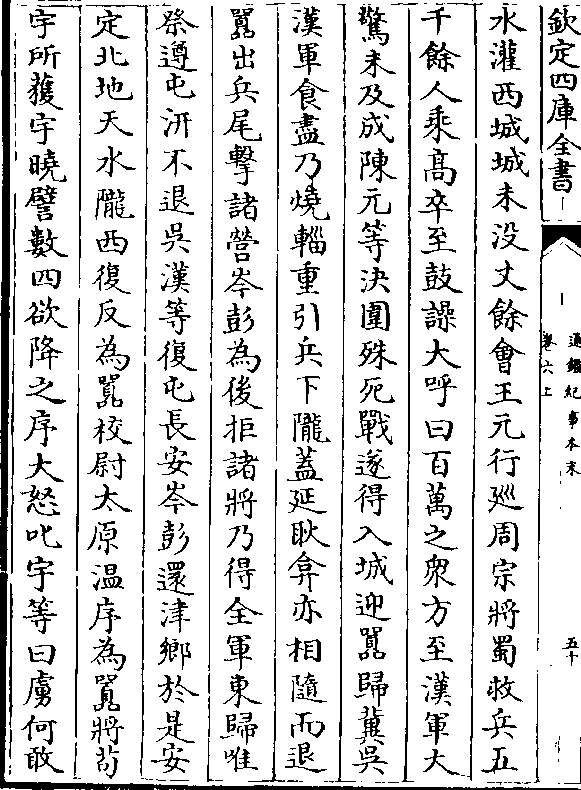 欽定四庫全書
通鑑紀事本末
卷六上
五十
水灌西城城未没丈餘會王元行廵周宗將蜀救兵五
千餘人乘髙卒至鼓譟大呼曰百萬之衆方至漢軍大
驚未及成陳元等決圍殊死戰遂得入城迎囂歸冀吳
漢軍食盡乃燒輜重引兵下隴蓋延耿弇亦相隨而退
囂出兵尾擊諸營岑彭為後拒諸將乃得全軍東歸唯
祭遵屯汧不退吳漢等復屯長安岑彭還津鄉於是安
定北地天水隴西復反為囂校尉太原温序為囂將茍
宇所獲宇曉譬數四欲降之序大怒叱宇等曰虜何敢